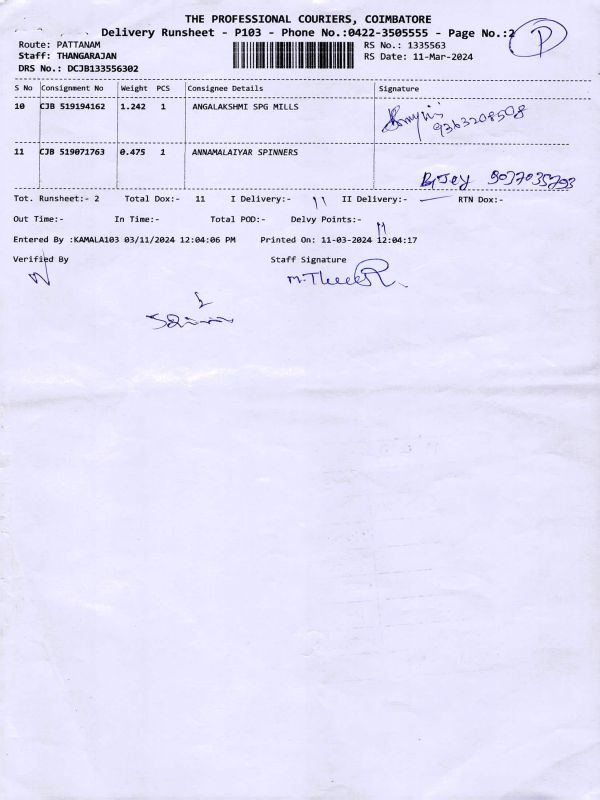 THE PROFESSIONAL COURIERS, COIMBATORE
Delivery Runsheet - P103 - Phone No.:0422-3505555 - Page No.:2
P
Route: PATTANAM
RS No.: 1335563
Staff: THANGARAJAN
RS Date: 11-Mar-2024
DRS No.: DCJB133556302
S No Consignment No Weight PCS Consignee Details Signature
10 CJB 519194162 1.242 1 ANGALAKSHMI SPG MILLS
9363208508
11 CJB 519071763 0.475 1 ANNAMALAIYAR SPINNERS
9037035793
Tot. Runsheet:- 2 Total Dox:- 11 I Delivery:- 11 II Delivery:- — RTN Dox:-
Out Time:- In Time:- Total POD:- Delvy Points:- 11
Entered By :KAMALA103 03/11/2024 12:04:06 PM Printed On: 11-03-2024 12:04:17
Verified By Staff Signature